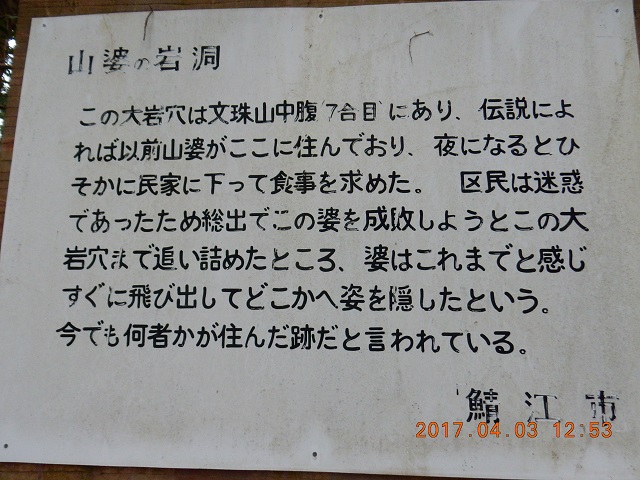 山婆の岩洞
この大岩穴は文珠山中腹(7合目)にあり、伝説によ
れば以前山婆がここに住んでおり、夜になるとひ
そかに民家に下って食事を求めた。 区民は迷惑
であったため総出でこの婆を成敗しようとこの大
岩穴まで追い詰めたところ、婆はこれまでと感じ
すぐに飛び出してどこかへ姿を隠したという。
今でも何者かが住んだ跡だと言われている。
鯖江市
2017.04.03 12:53